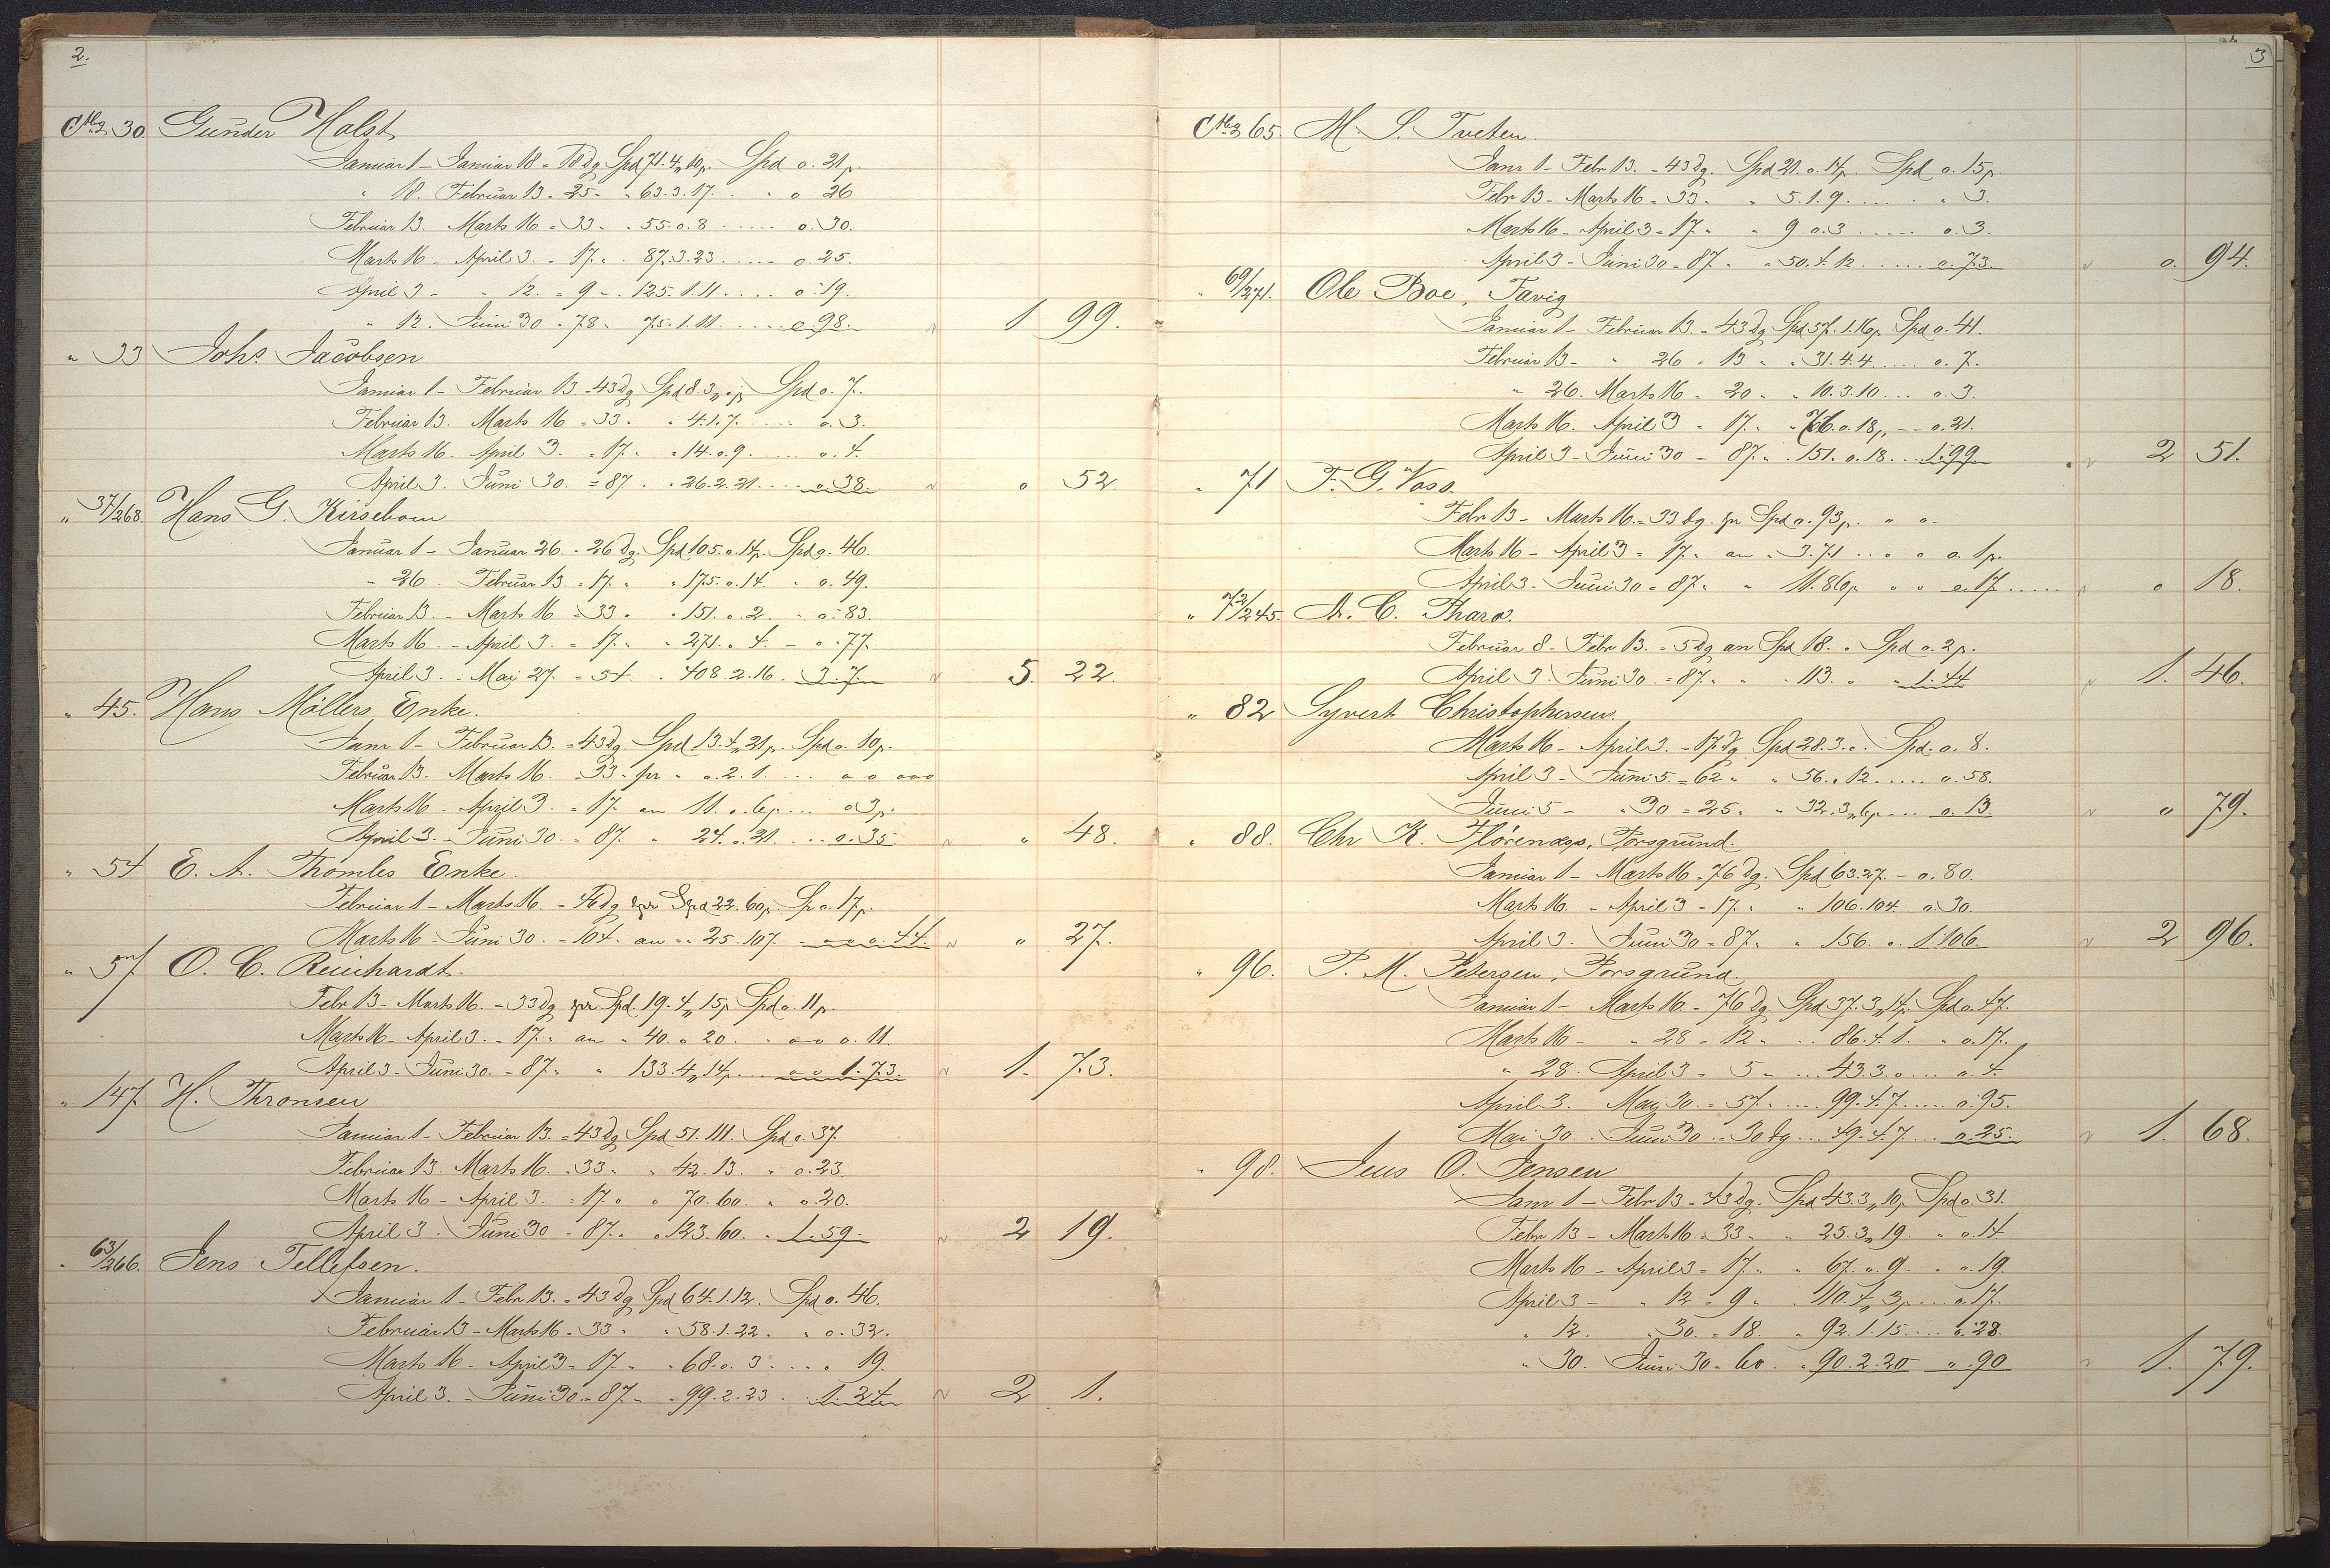 2.
30. Gunder Holst
Januar 1 - Januar 18 = 18 dg Spd 71. 4. 10 p. Spd o. 21 p. 
" 18. Februar 13 = 25 " " 63. 3. 17. . " o 26
Februar 13. Marts 16 = 33 " " 55. o. 8 ..... o. 30.
Marts 16 - April 3. = 17 " . 87. 3. 23 ..... o. 25.
April 3 - " 12. = 9 " . 125. 1. 11 .... o. 19.
" 12. Juni 30 = 78 " 75. 1. 11. ..... o. 98. 1 99.
" 33 Johs. Jacobsen
Januar 1 - Februar 13 = 43 dg Spd 8. 3 Spd o. 7.
Februar 13. Marts 16 = 33 " " 4. 1. 7. ..... o. 3.
Marts 16. April 3. = 17 " " 14. o. 9. ..... o. 4.
April 3. Juni 30. = 87. " 26. 2. 21. .... o. 38. o 52.
" 37/268. Hans G. Kirsebom
Januar 1 - Januar 26. = 26 dg. Spd 105. o. 14 p. Spd o. 46.
" 26. Februar 13. = 17. " " 175. o. 14. " o. 49.
Februar 13. - Marts 16 = 33 " " 151. o. 2. - o. 83.
Marts 16. - April 3. = 17. " " 271. o. 4. - o. 77.
April 3. - Mai 27. = 54. . 408. 2. 16. 3. 7. 5. 22.
" 45. Hans Möllers Enke.
Janr 1 - Februar 13. = 43 dg. Spd 13. 4. 21 p. Spd o. 10 p.
Februar 13. Marts 16. = 33 " pr " o. 2. 1. ... o o ooo
Marts 16. April 3. = 17. an 11. o. 6 p. ... o 3 p.
April 3. - Juni 30. = 87. " 24. o. 21. ... o. 35 " 48.
" 54 E. A. Thomles Enke.
Februar 1 - Marts 16. = dg pr Spd 22. 60 p. Sp o. 17 p.
Marts 16 - Juni 30. = 104. an " 25. 107. o. 44. " 27.
" 57 O. C. Reinhardt.
Febr 13 - Marts 16. = 33 dg pr Spd. 19. 4. 15 p. Spd o. 11 p.
Marts 16 - April 3. = 17. " an " 40. o 20. " o o o. 11.
April 3 - Juni 30. = 87 " " 133. 4. 14 p. ... 1. 73. 1. 73.
" 147 H. Thronsen
Januar 1 - Februar 13. = 43 dg Spd 51. 111. Spd o. 37.
Februar 13. Marts 16. = 33 " " 42. 13. " o. 23.
Marts 16 - April 3. = 17 " " 70. 60. " o. 20.
April 3. Juni 30 = 87. " " 123. 60. " 1. 59. 2 19.
" 63/266. Jens Tellefsen.
Januar 1 - Febr 13. = 43 dg Spd 64. 1. 12. Spd o. 46.
Februar 13 - Marts 16 = 33 " " 58. 1. 22. " o. 32.
Marts 16 - April 3 = 17 " " 68. o. 3 .... 19.
April 3. - Juni 30. = 87 " " 99. 2. 23 . 1. 24 2 1.
3
65. M. S. Tveten.
Janr 1 - Febr 13. = 43 dg. Spd 21. o. 14 p. Spd o. 15 p.
Febr 13 - Marts 16 = 33 " " 5. 1. 9. ..... " 3.
Marts 16 - April 3 = 17 " " 9. o. 3 ..... o. 3.
April 3 - Juni 30 = 87 " " 50. 4. 12 ..... o. 73. o. 94.
" 69/271. Ole Boe, Favig
Januar 1 - Februar 13. = 43 dg Spd 57. 1. 16 p. Spd o. 41.
Februar 13 - " 26 = 13 " " 31. 4. 4 .... o. 7.
" 26. Marts 16 = 20 " " 10. 3. 10 ... o. 3.
Marts 16. April 3 = 17. " " o. 18 " - - o. 21.
April 3 - Juni 30 = 87. " 151. o. 18. . 1. 99 2 51.
" 71 F. G. Voss.
Febr 13 - Marts 16. = 33 dg. pr Spd o. 93 p. " o -
Marts 16 - April 3 = 17. " an " 3. 71 .. o o o. 1 p.
April 3 - Juni 30 = 87. " " 11. 86 p. " o o. 17 ..... o 18.
" 72/245. A. C. Thara.
Februar 8 - Febr 13. = 5 dg an Spd 18. o Spd o. 2 p.
April 3. Juni 30. = 87. " " 113. " " 1. 44 1. 46.
" 82 Syvert Christophersen.
Marts 16 - April 3. = 17 dg Spd 28. 3. o. Spd. o. 8.
April 3 - Juni 5. = 62 " " 56. o 12 ..... o. 58.
Juni 5 - " 30 = 25. " " 32. 3. 6 p. ... o. 13. o 79.
" 88. Chr K. Florenæs, Porsgrund.
Januar 1 - Marts 16 = 76 dg. Spd 63. 27. - o. 80.
Marts 16. - April 3 = 17. " " 106. 104. o. 30.
April 3. Juni 30 = 87. " " 156. o. 1. 106. 2 96.
" 96. P. M. Petersen, Porsgrund.
Januar 1 - Marts 16 = 76 dg Spd 37. 3. 14 p. Spd o. 47.
Marts 16 - " 28 = 12 " .. 86. 4. 1. " o. 17.
" 28. April 3 = 5 " ... 43. 3. o ... o. 4.
April 3. Mai 30. = 57. " ..... 99. 4. 7. ..... o. 95.
Mai 30. Juni 30 = 30 dg ... 49. 4. 7. ... o. 25. 1. 68.
" 98. Jens O. Jensen
Janr 1 - Febr 13 = 43 dg. Spd 43. 3. 10 p. Spd o. 31.
Febr 13 - Marts 16 = 33 " " 25. 3. 19. " o. 14
Marts 16 - April 3 = 17. " " 67. o. 9. " o. 19.
April 3 - " 12 = 9 " . 110. 4. 3 p. ... o. 17.
" 12. " 30. = 18. " 92. 1. 15. ... o. 28.
" 30. Juni 30 = 60. " 90. 2. 20 " . 90 1. 79.